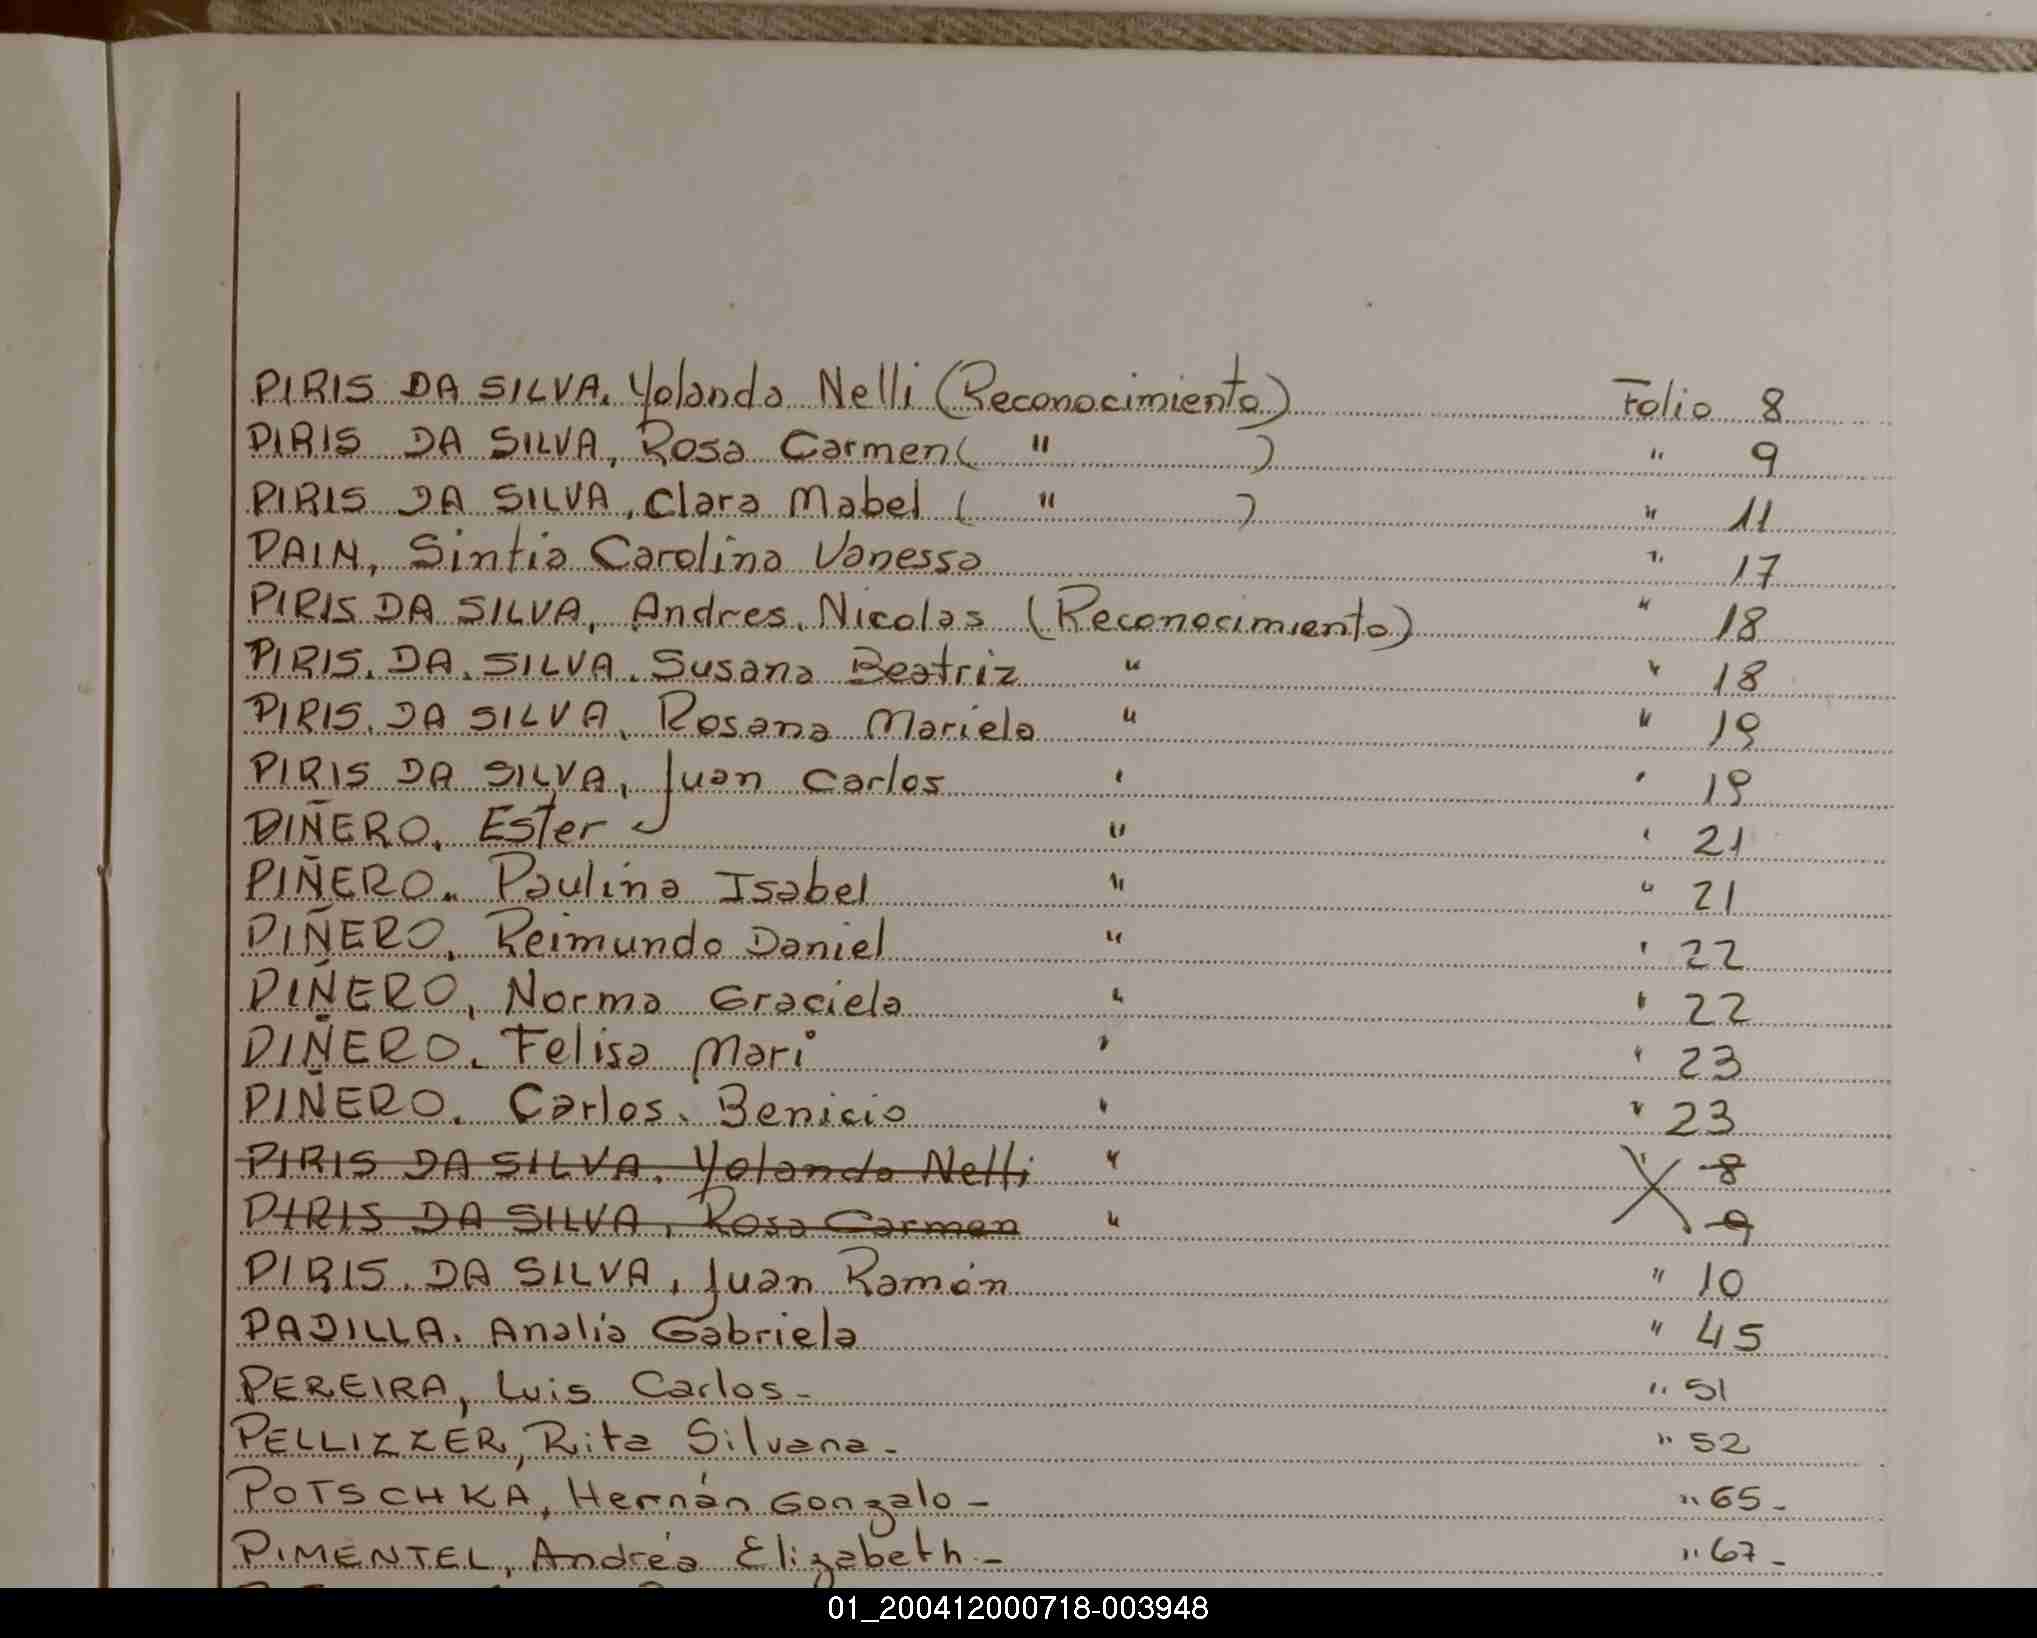 PIRIS DA SILVA, Yolanda Nelli (Reconocimiento) Folio 8
PIRIS DA SILVA, Rosa Carmen ( " ) " 9
PIRIS DA SILVA, Clara Mabel ( " ) " 11
PAIN, Sintia Carolina Vanessa " 17
PIRIS DA SILVA, Andres Nicolas (Reconocimiento) " 18
PIRIS DA SILVA, Susana Beatriz " " 18
PIRIS DA SILVA, Rosana Mariela " " 19
PIRIS DA SILVA, Juan Carlos " " 19
PIÑERO, Ester " " 21
PIÑERO, Paulina Isabel " " 21
PIÑERO, Reimundo Daniel " " 22
PIÑERO, Norma Graciela " " 22
PIÑERO, Felisa Mari " " 23
PIÑERO, Carlos Benicio " " 23
PIRIS DA SILVA, Yolanda Nelli " " 8
PIRIS DA SILVA, Rosa Carmen " 9
PIRIS DA SILVA, Juan Ramón " 10
PADILLA, Analía Gabriela " 45
PEREIRA, Luis Carlos- " 51
PELLIZZER, Rita Silvana- " 52
POTSCHKA, Hernán Gonzalo- " 65-
PIMENTEL, Andréa Elizabeth- " 67-
01_200412000718-003948